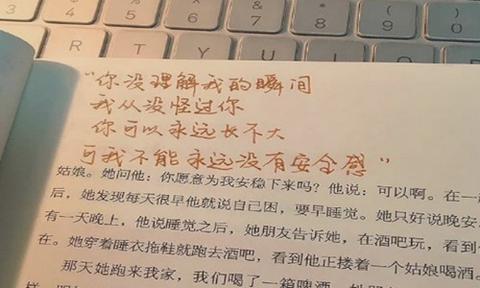 5 6 7 8 9 0
R T Y U I O P
“你没理解我的瞬间
我从没怪过你
你可以永远长不大
可我不能永远没有安全感”
姑娘。她问他：你愿意为我安稳下来吗？他说：可以啊。在一起
后，她发现每天很早他就说自己困，要早睡觉。她只好说晚安。
有一天晚上，他说睡觉之后，她朋友告诉她，在酒吧玩，看到他
在。她穿着睡衣拖鞋就跑去酒吧，看到他正搂着一个姑娘喝酒。
那天她跑来我家，我们喝了一箱啤酒，她